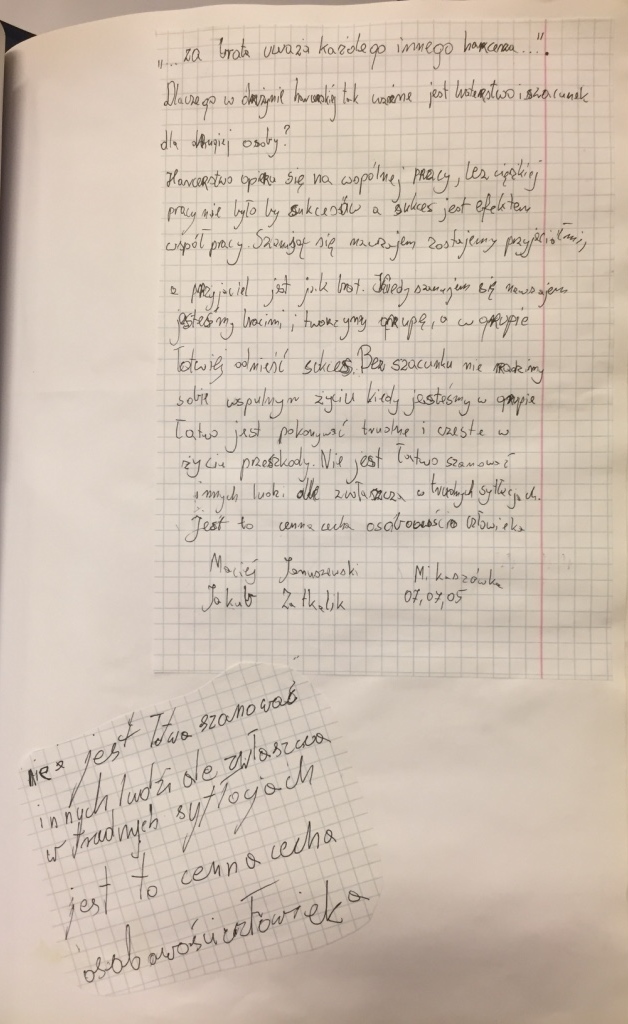 "... za brata uważa każdego innego harcerza..."
Dlaczego w drużynie harcerskiej tak ważne jest braterstwo i szacunek
dla drugiej osoby?
Harcerstwo opiera się na wspólnej pracy, bez ciężkiej
pracy nie było by sukcesów a sukces jest efektem
współpracy. Szanując się nawzajem zostajemy przyjaciółmi,
a przyjaciel jest jak brat. Kiedy szanujem się nawzajem
jesteśmy bracimi i tworzymy grupę, a w grupie
łatwiej odnieść sukces. Bez szacunku nie radzimy
sobie wspulnym życiu kiedy jesteśmy w grupie
łatwo jest pokonywać trudne i częste w
życiu przeszkody. Nie jest łatwo szanować
innych ludzi ale zwłaszcza w trudnych sytłacjach.
Jest to cenna cecha osobowościa człowieka
Maciej Januszewski Mikaszówka
Jakub Zatkalik 07,07,05
nie jest łatwo szanować
innych ludzi ale zwłaszcza
w trudnych sytłocjach
jest to cenna cecha
osobowościczłowieka